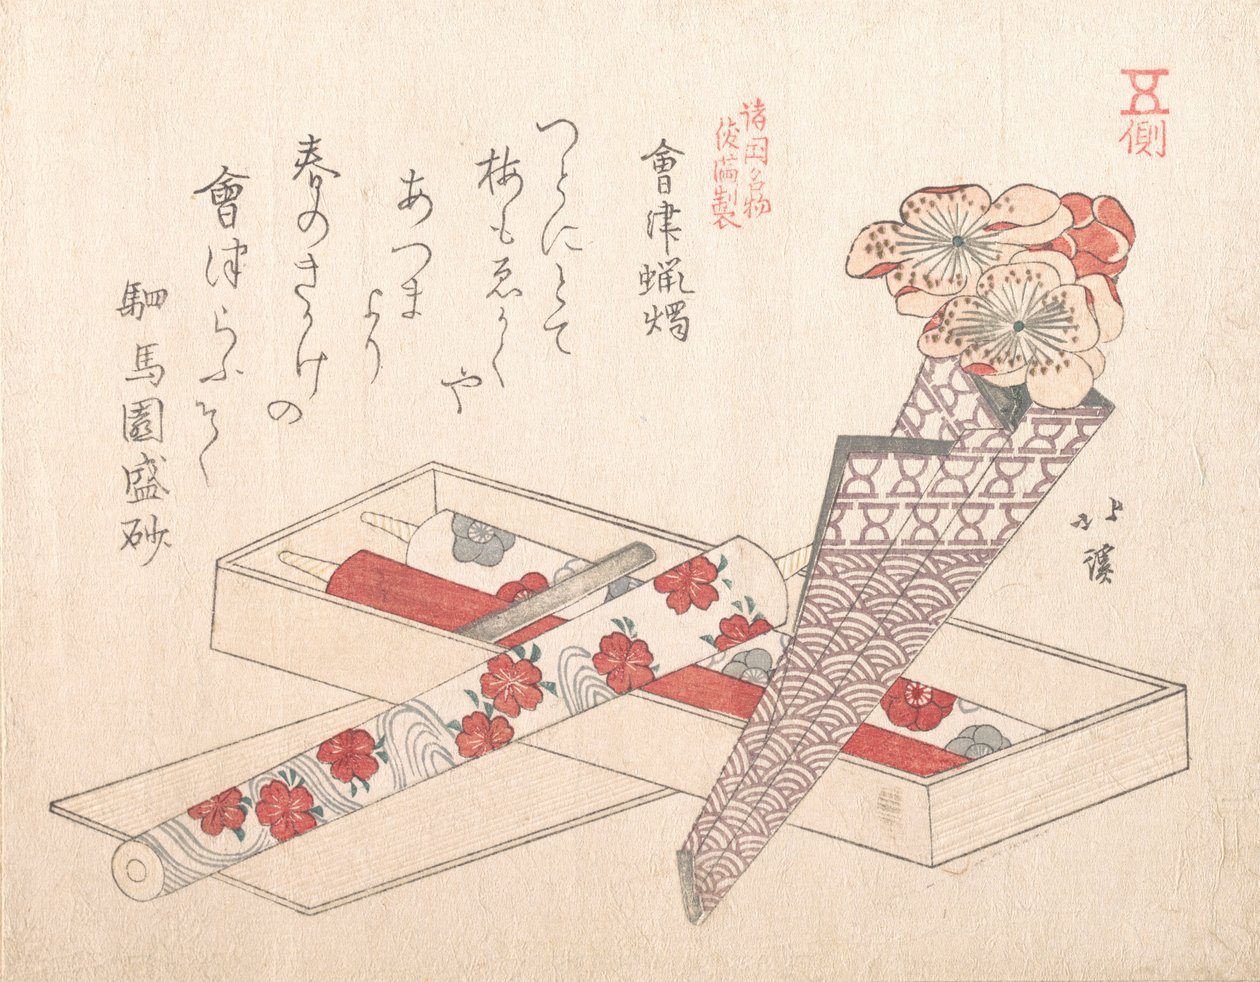 側
諸国名物
俊満製
會津蝋燭
つとにとて
梅もゑかくや
あつまより
春のきかけの
會津らふそく
駟馬園盛砂
北溪